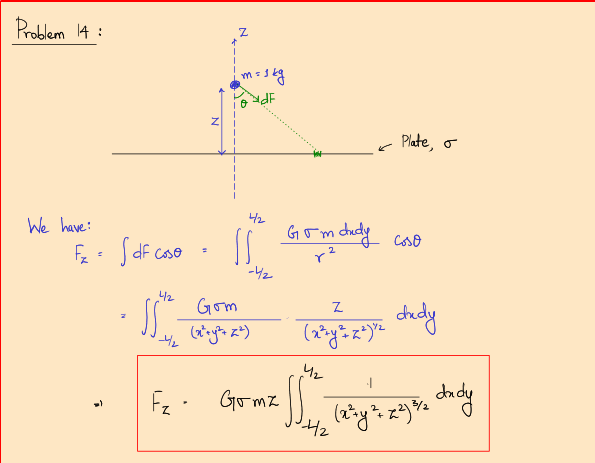 Problem 14 :
z
m = 1 kg
θ
dF
z
Plate, σ
We have:
F_z = ∫ dF cosθ = ∬_{-L/2}^{L/2} \frac{Gσm dxdy}{r^2} cosθ
= ∬_{-L/2}^{L/2} \frac{Gσm}{(x^2+y^2+z^2)} · \frac{z}{(x^2+y^2+z^2)^{1/2}} dxdy
⇒ F_z = Gσmz ∬_{-L/2}^{L/2} \frac{1}{(x^2+y^2+z^2)^{3/2}} dxdy